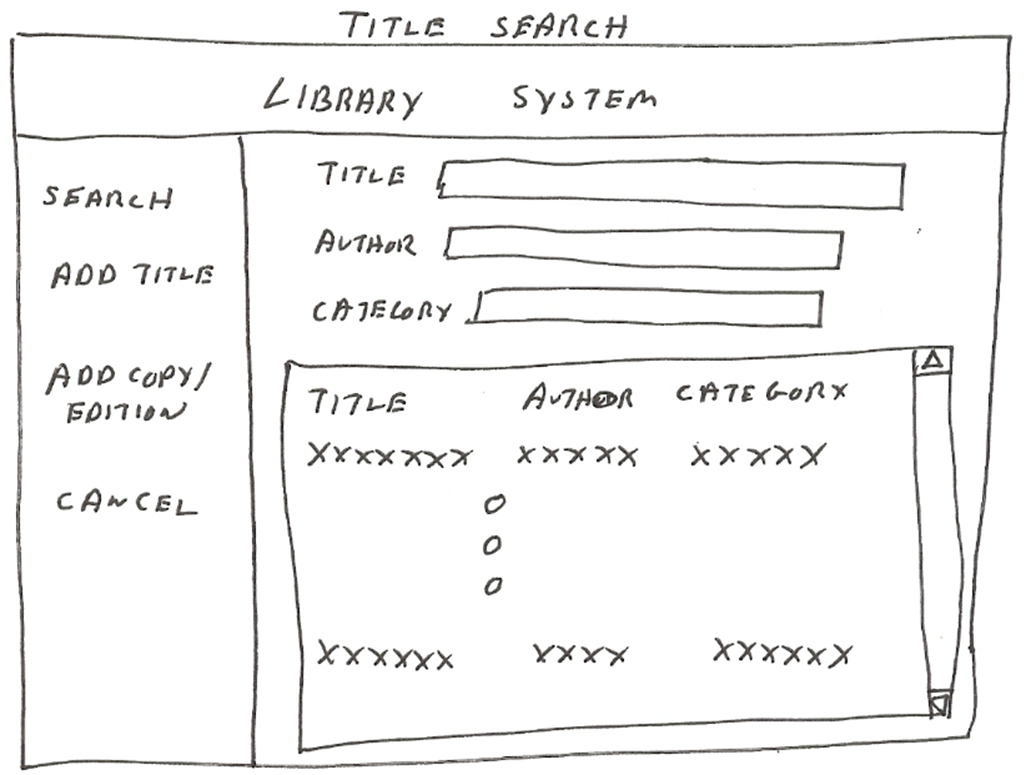 TITLE SEARCH
LIBRARY SYSTEM
SEARCH
ADD TITLE
ADD COPY/
EDITION
CANCEL
TITLE
AUTHOR
CATEGORY
TITLE AUTHOR CATEGORY
XXXXXXX XXXXX XXXXX
XXXXXX XXXX XXXXXX